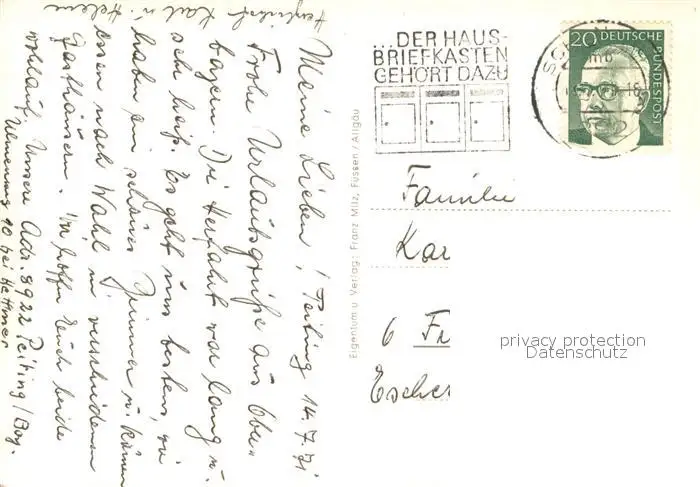 Meine Lieben! Peiting 14.7.71
Frohe Urlaubsgrüße aus Ober-
bayern. Die Herfahrt war lang u.
sehr heiß. Es geht uns bestens, wir
haben ein schönes Zimmer u. können
essen nach Wahl in verschiedenen
Gasthäusern. Wir hoffen Euch beide
wohlauf. Unsere Adr. 8922 Peiting/Bay.
10 bei Hettmer
Herzlichst Karl u. Helene
Eigentum u. Verlag: Franz Milz, Füssen/Allgäu
...DER HAUS-
BRIEFKASTEN
GEHÖRT DAZU
20 DEUTSCHE
BUNDESPOST
Familie
Kar
6 Fr
Escher
privacy protection
Datenschutz